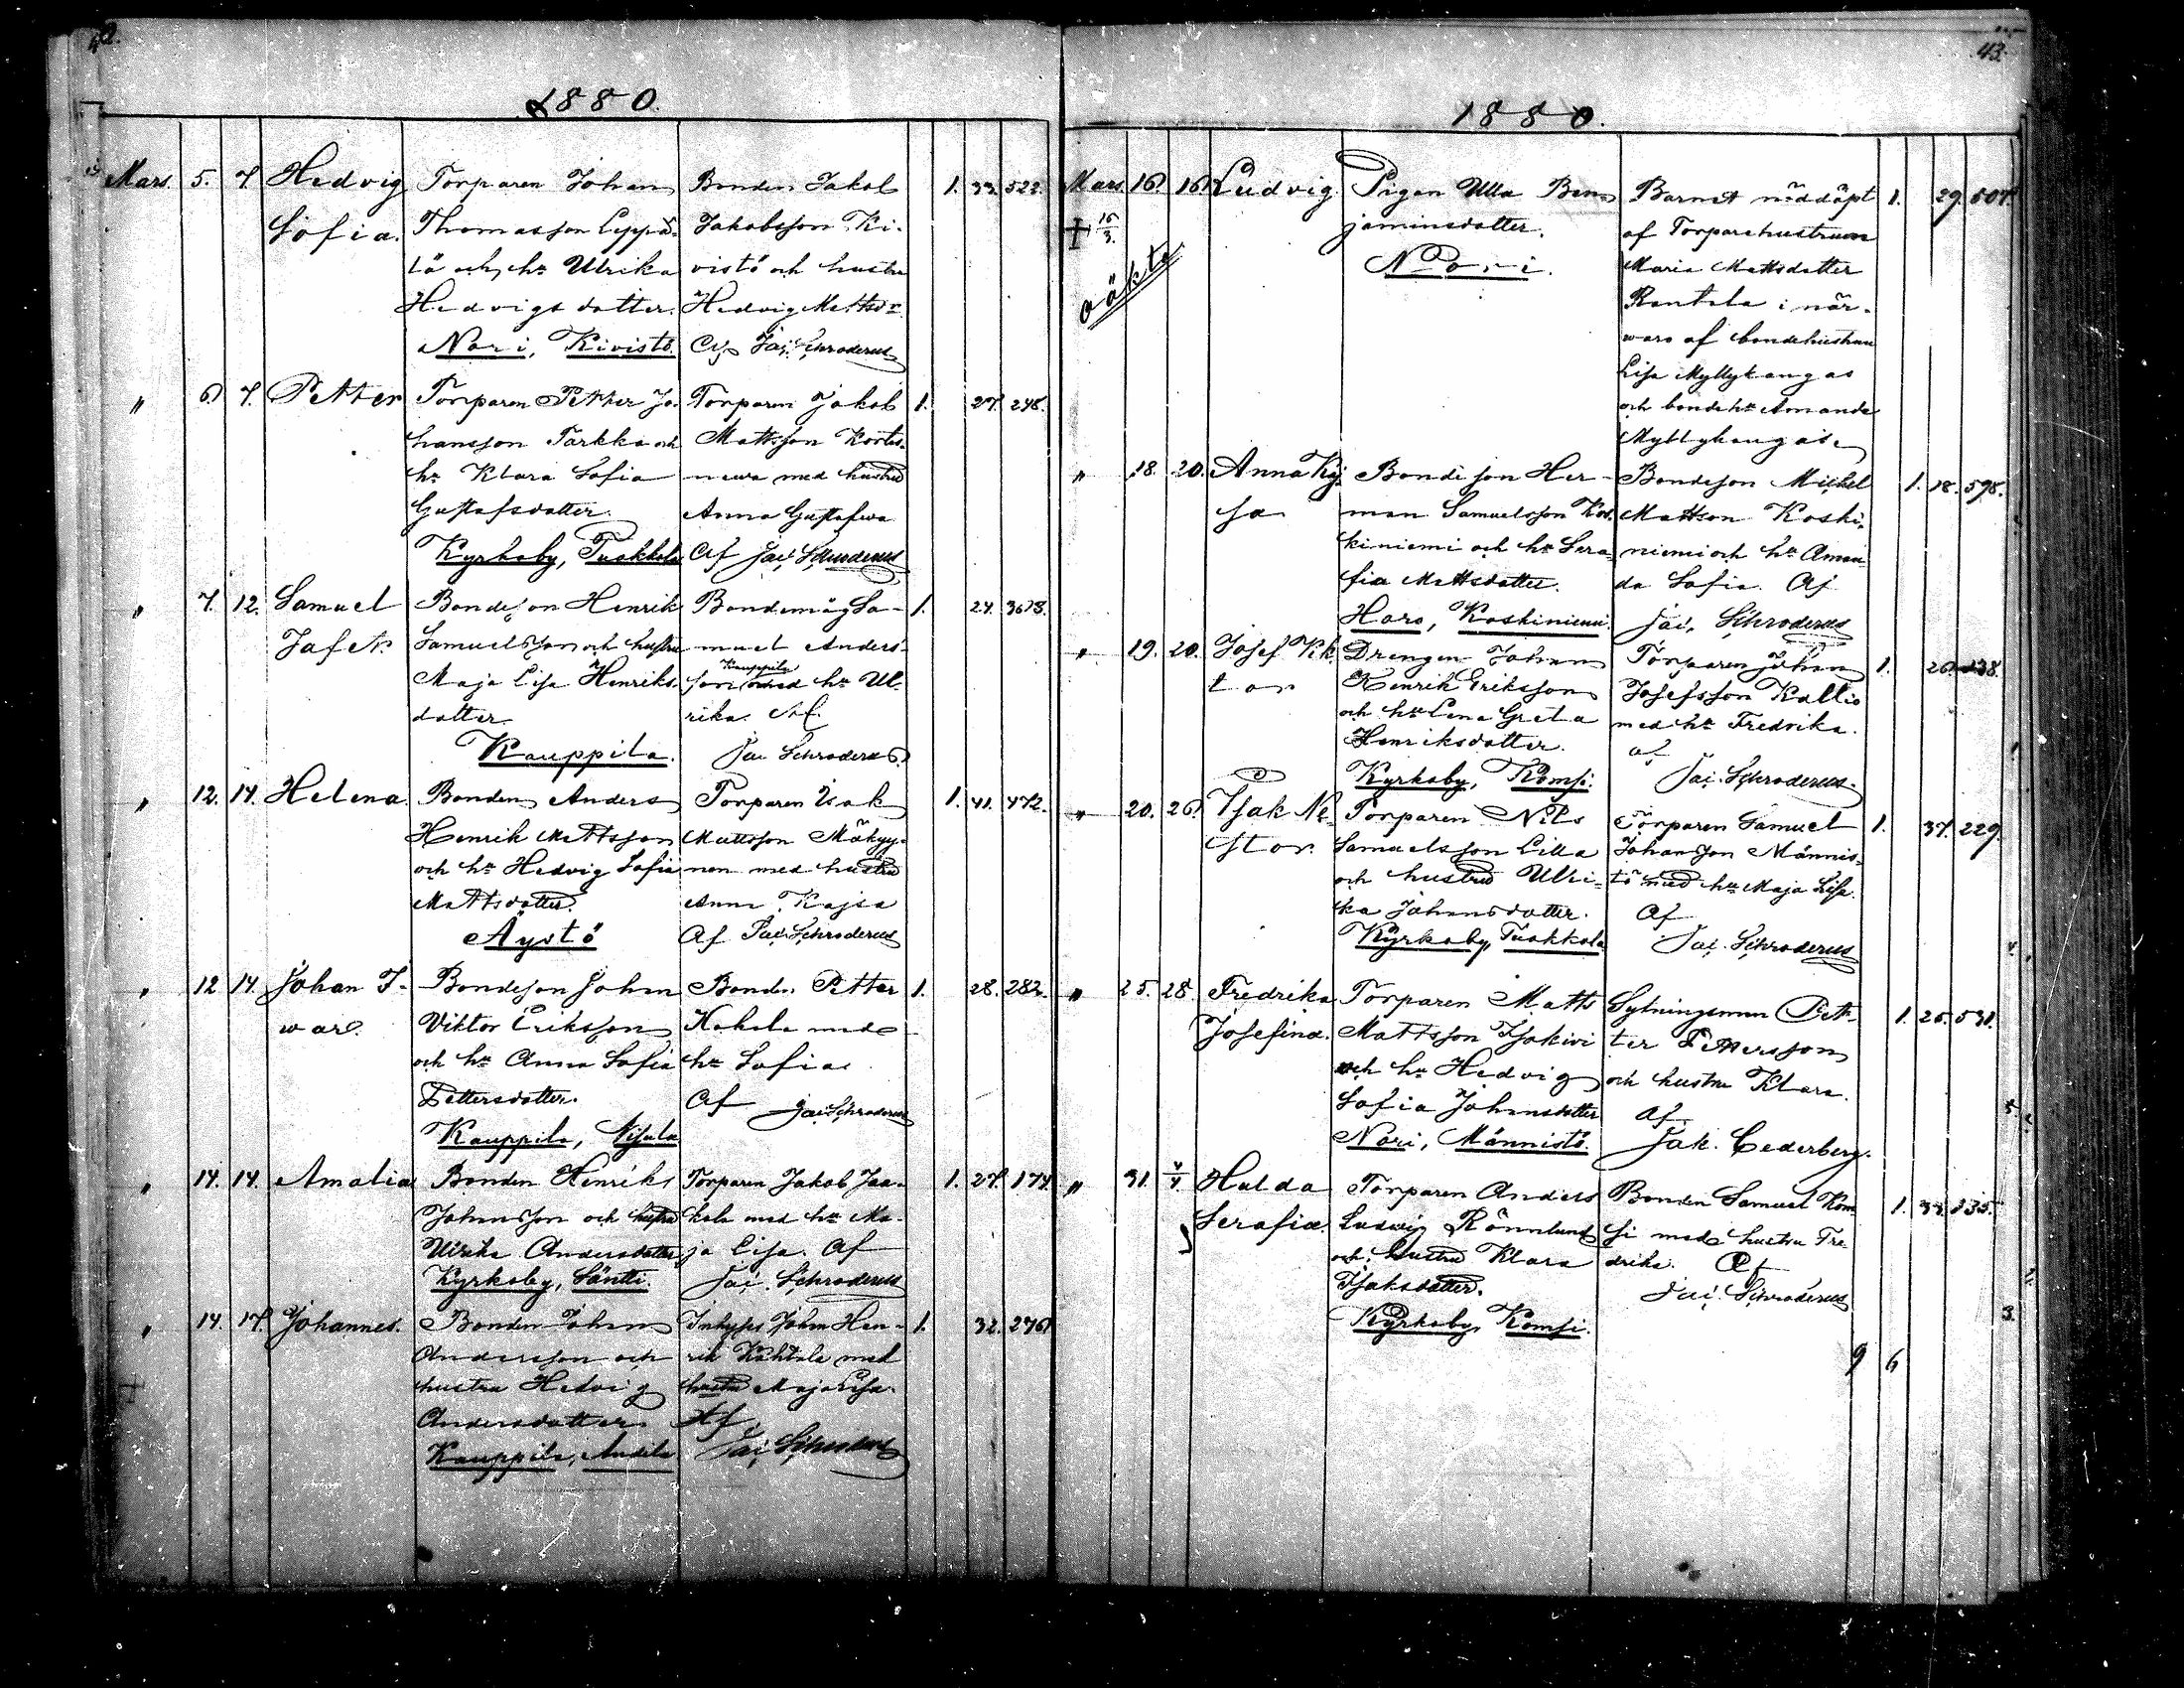 42.
1880.
Mars. 5. 7. Hedvig Torparen Johan Bonden Jakob 1. 33. 523.
Sofia. Thomasson Leppä- Jakobsson Ki-
lä och hu Ulrika vistö och hustru
Hedvigsdotter. Hedvig Mattsdr
Nori, Kivistö. Af Jac. Schroderus
" 6 7. Petter Torparen Petter Jo- Torparen Jakob 1. 27. 248.
hansson Tarkka och Mattsson Kortes-
hu Klara Sofia newa med hustru
Gustafsdotter. Anna Gustafwa
Kyrkoby, Tuokkola Af Jac. Schroderus
" 7. 12. Samuel Bondeson Henrik Bondemåg Sa- 1. 24. 367
Jafet. Samuelsson och hustru muel Anders-
Maja Lisa Henriks- son Kauppila med hu Ul-
dotter. rika. Af.
Kauppila. Jac. Schroderus.
" 12. 14. Helena. Bonden Anders Torparen Isak 1. 41. 472.
Henrik Mattsson Mattsson Mäkyy-
och hu Hedvig Sofia nen med hustru
Mattsdotter. Anna Kajsa
Äystö Af Jac. Schroderus
" 12 14. Johan I- Bondeson Johan Bonden Petter 1. 28. 282.
war. Viktor Eriksson Kokola med
och hu Anna Sofia hu Sofia.
Pettersdotter. Af Jac. Schroderus
Kauppila, Nisula
" 14. 14. Amalia Bonden Henrik Torparen Jakob Jaa- 1. 27. 174.
Johansson och hustru kola med hu Ma-
Ulrika Andersdotter ja Lisa. Af
Kyrkoby, Säntti. Jac. Schroderus
" 14. 17. Johannes. Bonden Johan Inhyses Johan Hen- 1. 32. 276
Andersson och rik Kohtala med
hustru Hedvig hustru Maja Lisa.
Andersdotter Af.
Kauppila, Andela Jac. Schroderus
43.
1880.
Mars. 16. 16. Ludvig. Pigan Ulla Ben- Barnet nöddöpt 1. 29. 507.
+ 16/3. jaminsdotter. af Torparehustrun
oäkta Nori. Maria Mattsdotter
Rantala i när-
waro af bondehustrun
Lisa Myllykangas
och bondehu Amanda
Myllykangas.
" 18. 20. Anna Kaj- Bondeson Her- Bondeson Mickel 1. 18. 598.
sa man Samuelsson Kos- Mattson Koski-
kiniemi och hu Sera- niemi och hu Aman-
fia Mattsdotter. da Sofia. Af
Haro, Koskiniemi. Jac. Schroderus
" 19. 20. Josef Vik- Drengen Johan Torparen Johan 1. 26. 138.
tor Henrik Eriksson Josefsson Kallio
och hu Lena Greta med hu Fredrika.
Henriksdotter. af
Kyrkoby, Komsi. Jac. Schroderus.
" 20. 26. Isak Ne- Torparen Nils Torparen Samuel 1. 37. 229.
stor. Samuelsson Lilla Johansson Männis-
och hustru Ulri- tö med hu Maja Lisa.
ka Johansdotter. Af
Kyrkoby, Tuokkola Jac. Schroderus
" 25. 28. Fredrika Torparen Matts Sytningsman Pet- 1. 25. 531.
Josefina. Mattsson Isokivi ter Pettersson
och hu Hedvig och hustru Klara.
Sofia Johansdotter Af.
Nori, Männistö. Jak. Cederberg.
" 31. 4/4. Hulda Torparen Anders Bonden Samuel Kom- 1. 34. 135.
Serafia. Ludvig Rönnlund si med hustru Fre-
och hustru Klara drika. Af
Isaksdotter. Jac. Schroderus
Kyrkoby, Komsi.
9 6